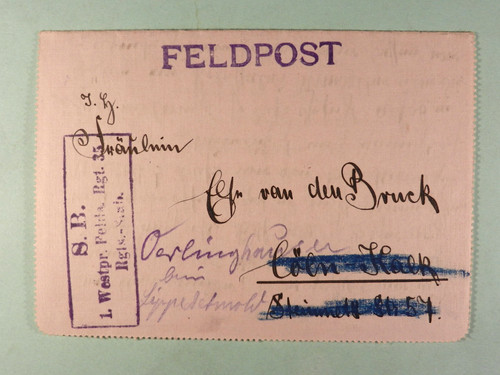 FELDPOST
I. H.
Fräulein
Else van den Bruck
Oerlinghausen
bei
Lippe Detmold
Cöln Kalk
Steinmetz Str 57.
S. B.
1. Westpr. Felda. Rgt. 35
Rgts.-Stab.